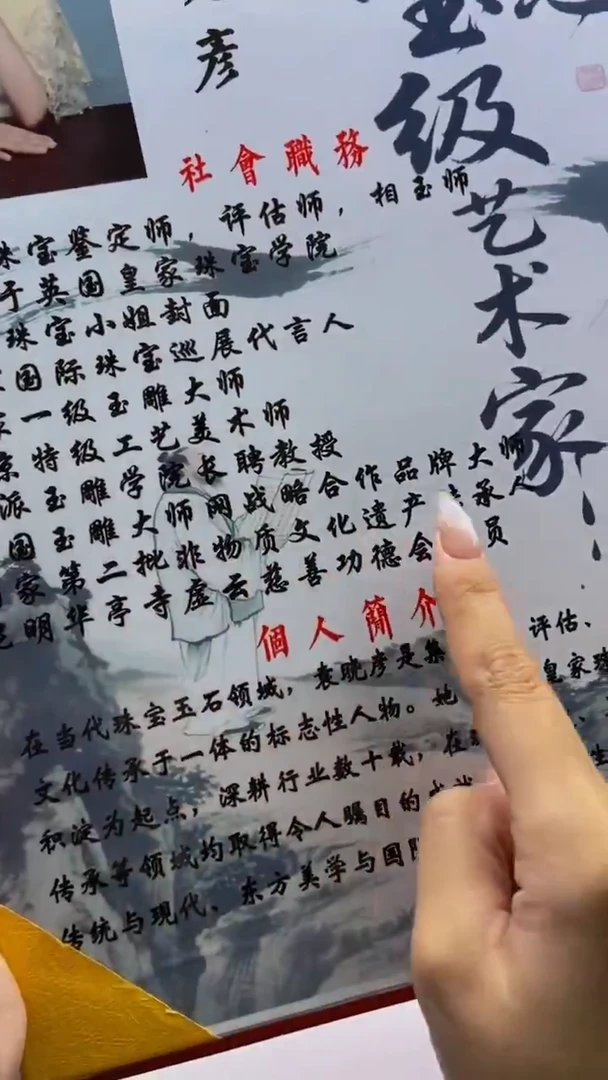 彦
级艺术家
社會職務
珠宝鉴定师，评估师，相玉师
于英国皇家珠宝学院
珠宝小姐封面
国际珠宝巡展代言人
一级玉雕大师
特级工艺美术师
派玉雕学院长聘教授
国玉雕大师网战略合作品牌大师
家第二批非物质文化遗产承人
明华亭寺虚云慈善功德会员
個人簡介
在当代珠宝玉石领域，袁晓彦是集评估、
文化传承于一体的标志性人物。她皇家珠
积淀为起点，深耕行业数十载，在
传承等领域均取得令人瞩目的
传统与现代、东方美学与国际